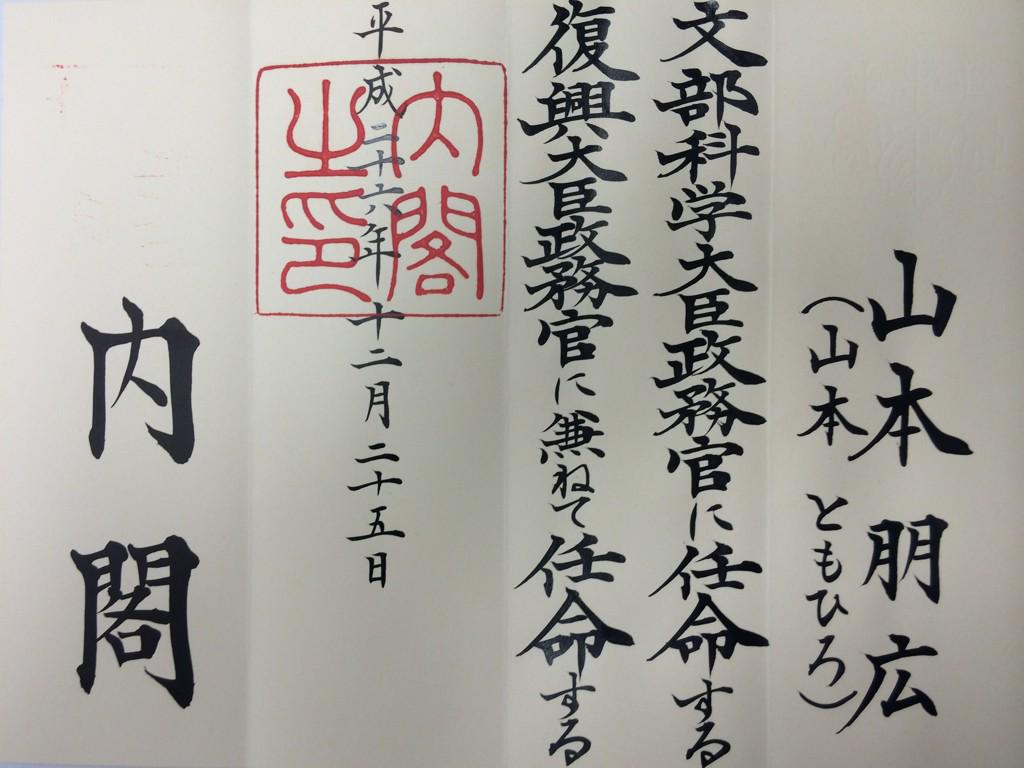 山本朋広
(山本ともひろ)
文部科学大臣政務官に任命する
復興大臣政務官に兼ねて任命する
平成二十六年十二月二十五日
内閣之印
内閣